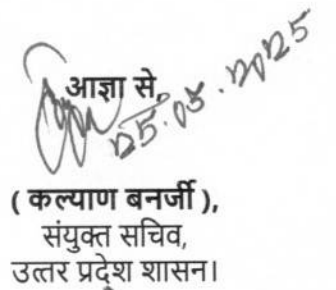 आज्ञा से,
25.03.2025
( कल्याण बनर्जी ),
संयुक्त सचिव,
उत्तर प्रदेश शासन।